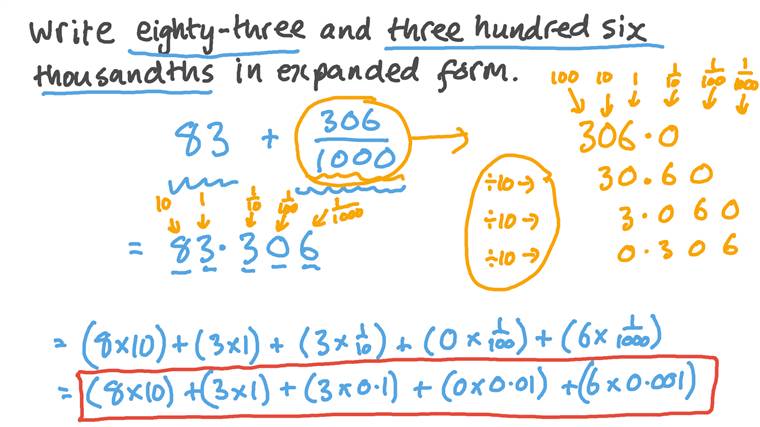 Write eighty-three and three hundred six
thousandths in expanded form.
100 10 1 1/10 1/100 1/1000
83 + 306/1000
306.0
÷10 → 30.60
÷10 → 3.060
÷10 → 0.306
10 1 1/10 1/100 1/1000
= 83.306
= (8×10) + (3×1) + (3×1/10) + (0×1/100) + (6×1/1000)
= (8×10) + (3×1) + (3×0.1) + (0×0.01) + (6×0.001)